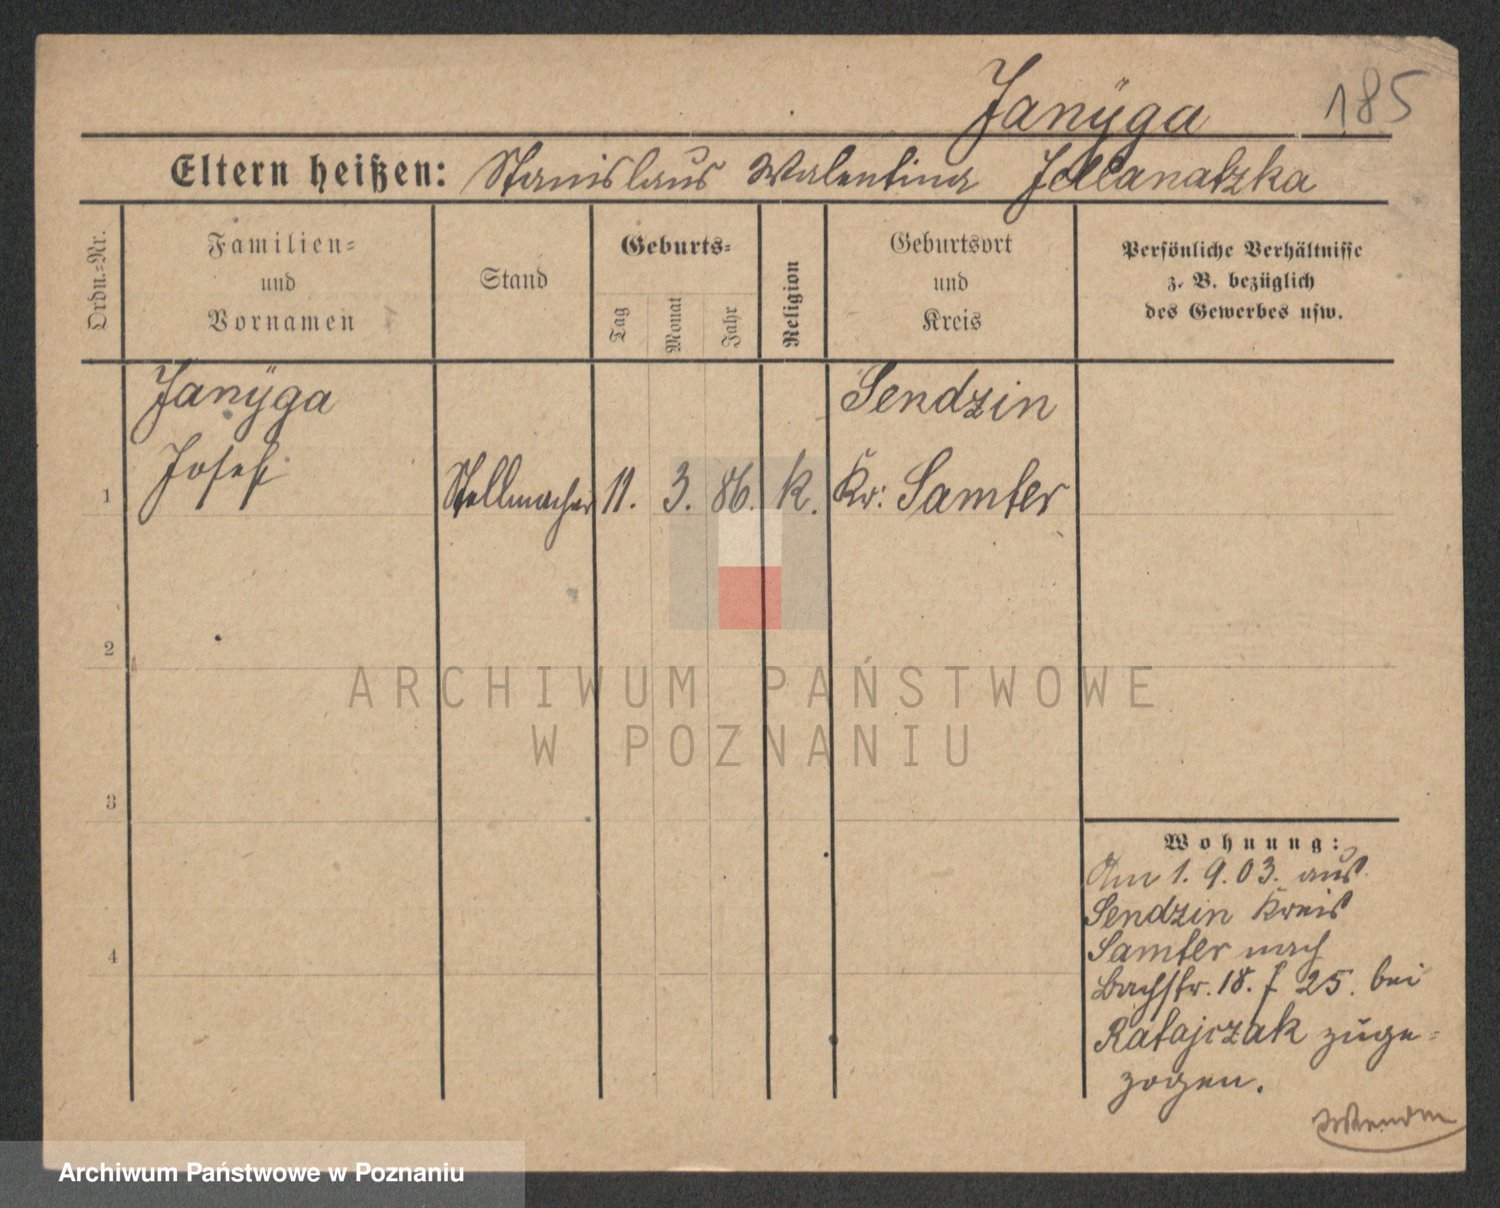 Janÿga 185
Eltern heißen: Stanislaus Walentina
Ordn.=Nr.
Familien=
und
Vornamen
Stand
Geburts=
Tag
Monat
Jahr
Religion
Geburtsort
und
Kreis
Persönliche Verhältnisse
z. B. bezüglich
des Gewerbes usw.
Janÿga
Sendzin
1 Josef Stellmacher 11. 3. 86. k. Kr: Samter
2
ARCHIWUM PAŃSTWOWE
W POZNANIU
3
4
Wohnung:
Am 1. 9. 03. aus
Sendzin Kreis
Samter nach
Bachstr. 18. f 25. bei
Ratajczak zuge=
zogen.
Archiwum Państwowe w Poznaniu